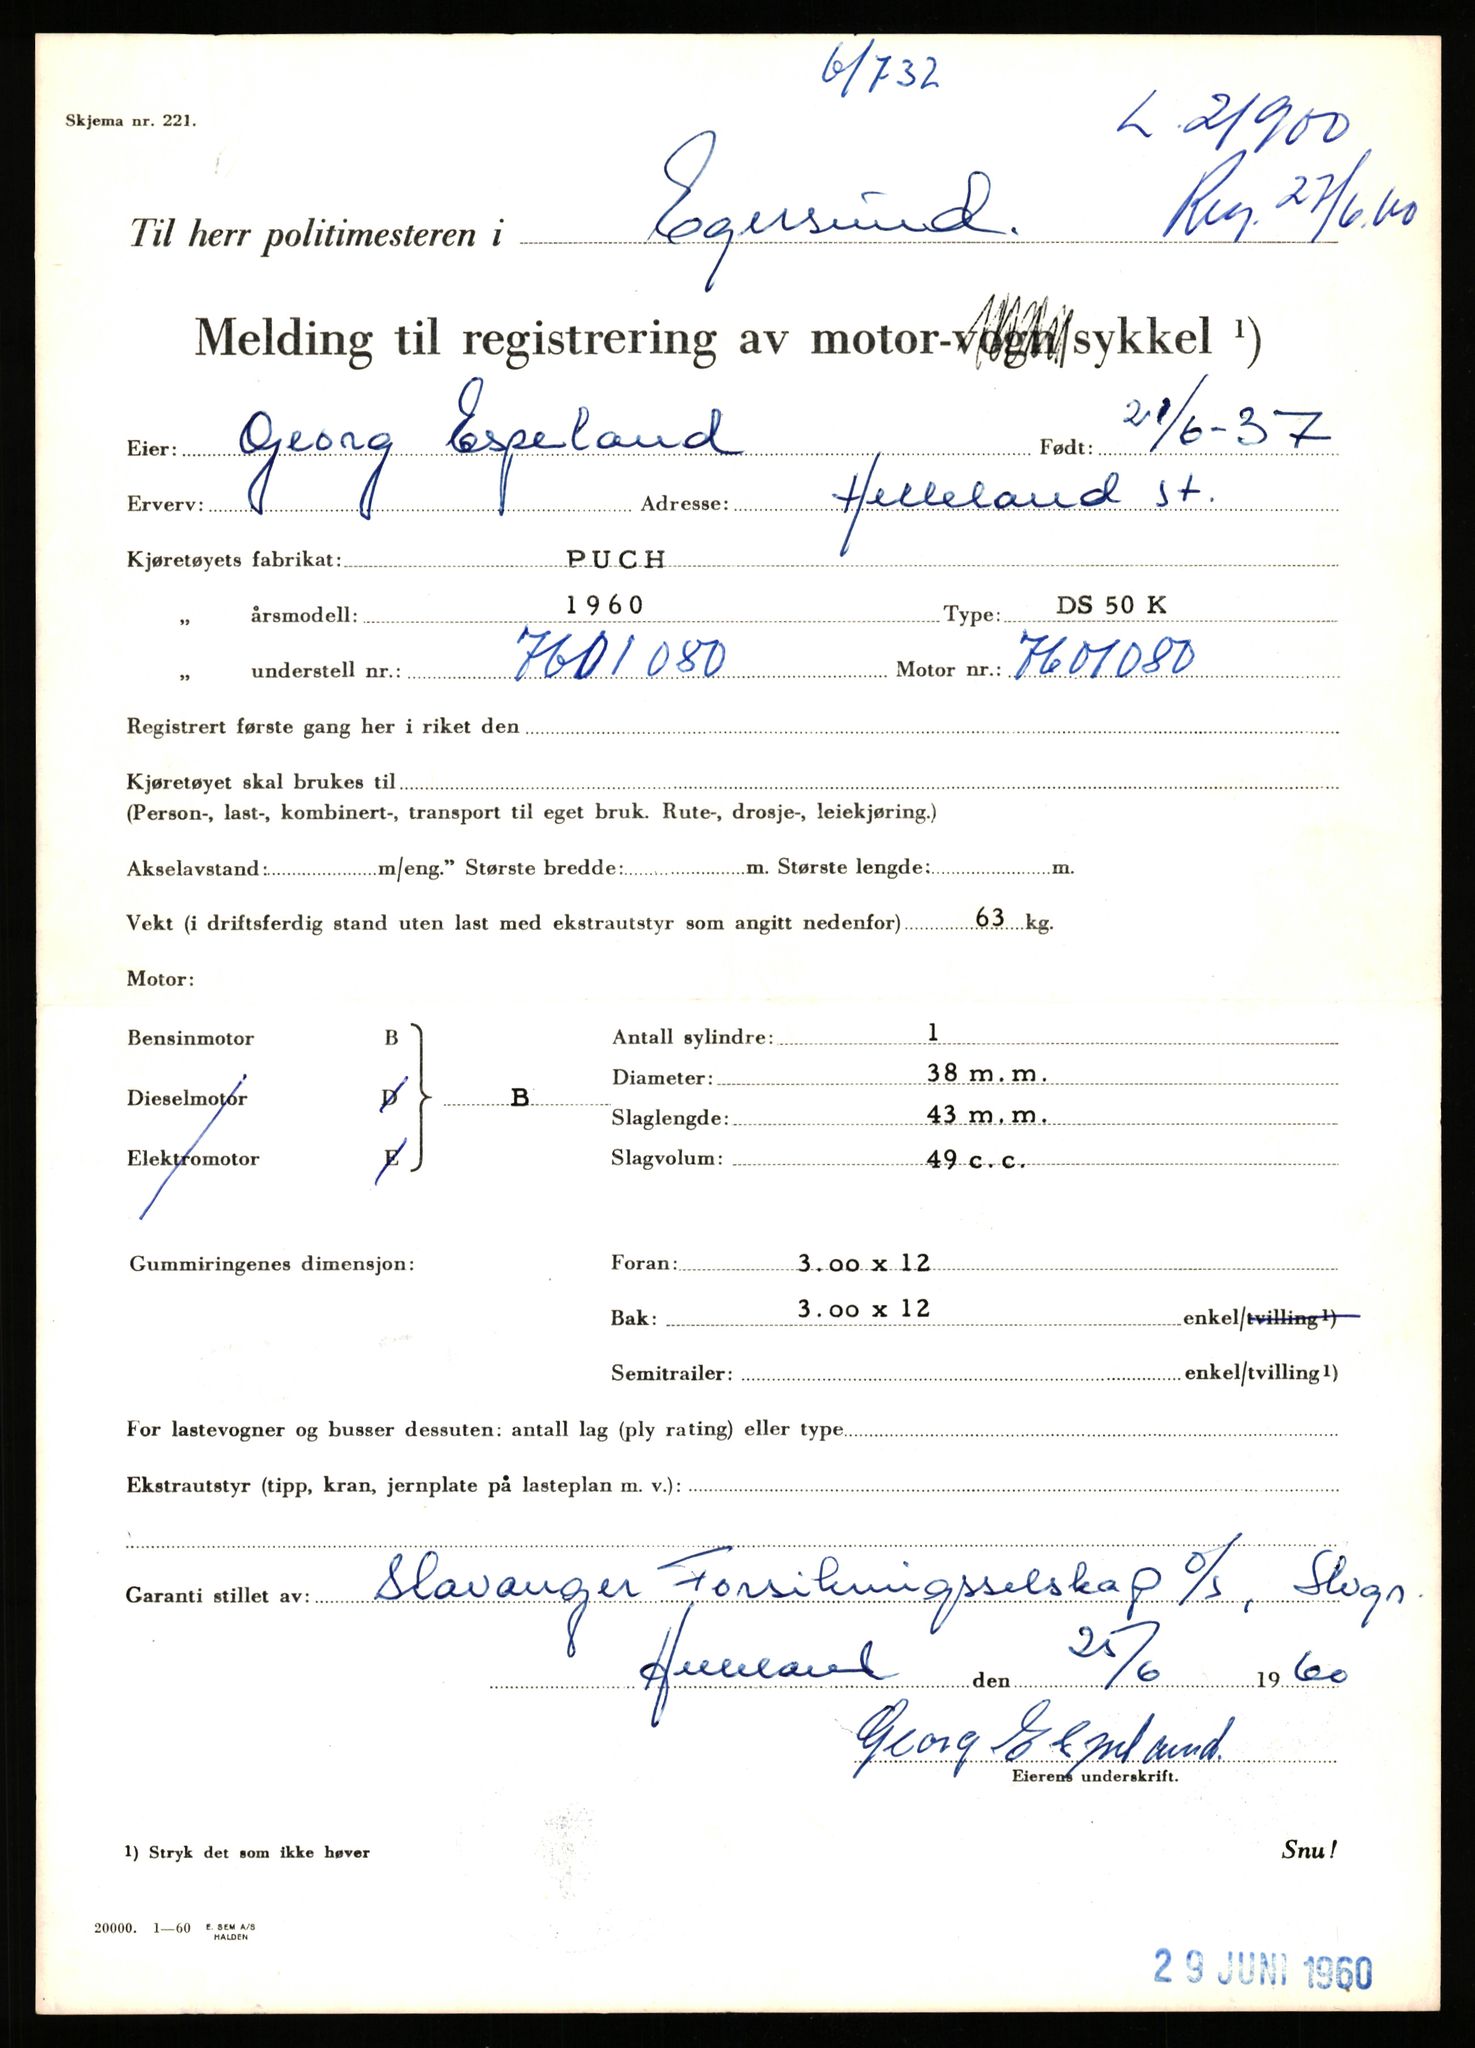 6/732
Skjema nr. 221.
L 21900
Reg. 27/6.60
Til herr politimesteren i Egersund.
Melding til registrering av motor-vogn/sykkel ¹)
Eier: Georg Espeland Født: 21/6-37
Erverv: Adresse: Helleland st.
Kjøretøyets fabrikat: PUCH
„ årsmodell: 1960 Type: DS 50 K
„ understell nr.: 7601080 Motor nr.: 7601080
Registrert første gang her i riket den
Kjøretøyet skal brukes til
(Person-, last-, kombinert-, transport til eget bruk. Rute-, drosje-, leiekjøring.)
Akselavstand: m/eng.” Største bredde: m. Største lengde: m.
Vekt (i driftsferdig stand uten last med ekstrautstyr som angitt nedenfor) 63 kg.
Motor:
Bensinmotor B Antall sylindre: 1
Diameter: 38 m.m.
Dieselmotor D B
Slaglengde: 43 m.m.
Elektromotor E Slagvolum: 49 c.c.
Gummiringenes dimensjon: Foran: 3.00 x 12
Bak: 3.00 x 12 enkel/tvilling¹)
Semitrailer: enkel/tvilling¹)
For lastevogner og busser dessuten: antall lag (ply rating) eller type
Ekstrautstyr (tipp, kran, jernplate på lasteplan m. v.):
Garanti stillet av: Stavanger Forsikringsselskap a/s, Stvgr.
Helleland den 25/6 1960
Georg Espeland.
Eierens underskrift.
1) Stryk det som ikke høver Snu!
20000. 1—60 E. SEM A/S
HALDEN
29 JUNI 1960